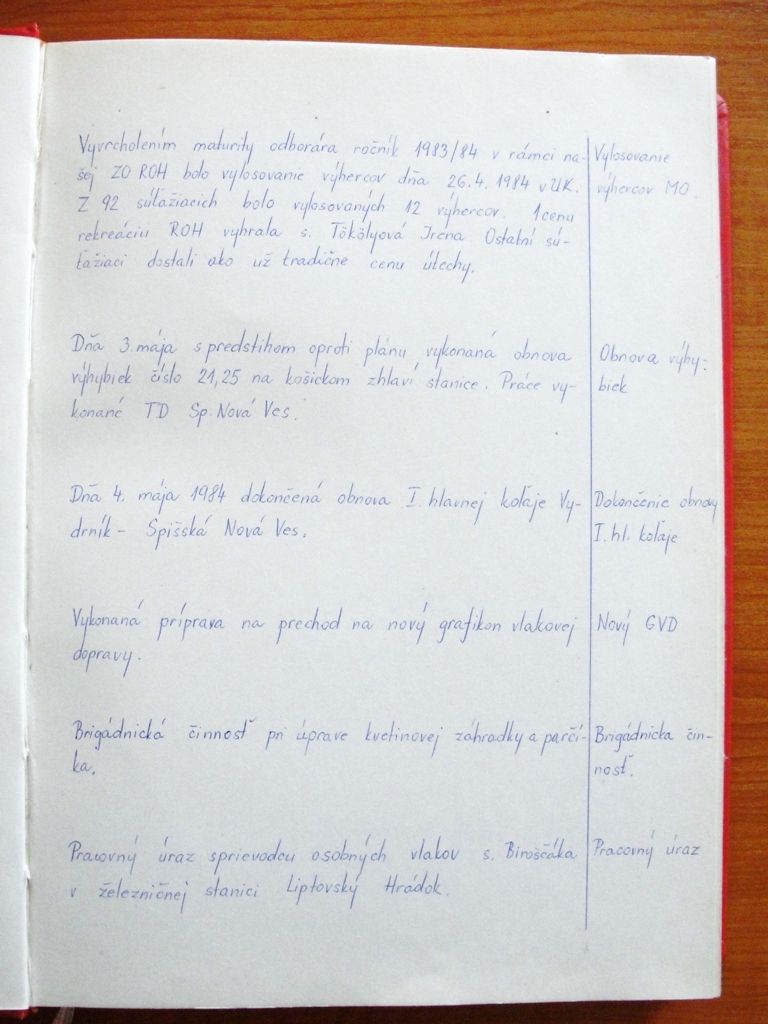 Vyvrcholením maturity odborára ročník 1983/84 v rámci na-
šej ZO ROH bolo vylosovanie výhercov dňa 26.4.1984 v ÚK.
Z 92 súťažiacich bolo vylosovaných 12 výhercov. 1 cenu
rekreáciu ROH vyhrala s. Tökölyová Irena. Ostatní sú-
ťažiaci dostali ako už tradične cenu útechy.
Vylosovanie
výhercov MO
Dňa 3. mája s predstihom oproti plánu vykonaná obnova
výhybiek číslo 21,25 na košickom zhlaví stanice. Práce vy-
konané TD Sp. Nová Ves.
Obnova výhy-
biek
Dňa 4. mája 1984 dokončená obnova I. hlavnej koľaje Vy-
drník - Spišská Nová Ves.
Dokončenie obnovy
I. hl. koľaje
Vykonaná príprava na prechod na nový grafikon vlakovej
dopravy.
Nový GVD
Brigádnická činnosť pri úprave kvetinovej záhradky a parčí-
ka.
Brigádnicka čin-
nosť.
Pracovný úraz sprievodcu osobných vlakov s. Biroščáka
v železničnej stanici Liptovský Hrádok.
Pracovný úraz